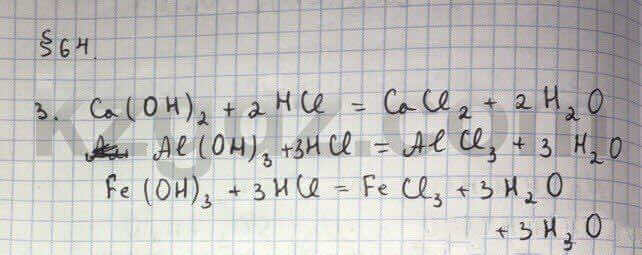 §64.
3. Ca(OH)₂ + 2HCl = CaCl₂ + 2H₂O
Al(OH)₃ + 3HCl = AlCl₃ + 3 H₂O
Fe(OH)₃ + 3HCl = FeCl₃ + 3H₂O
+ 3H₃O